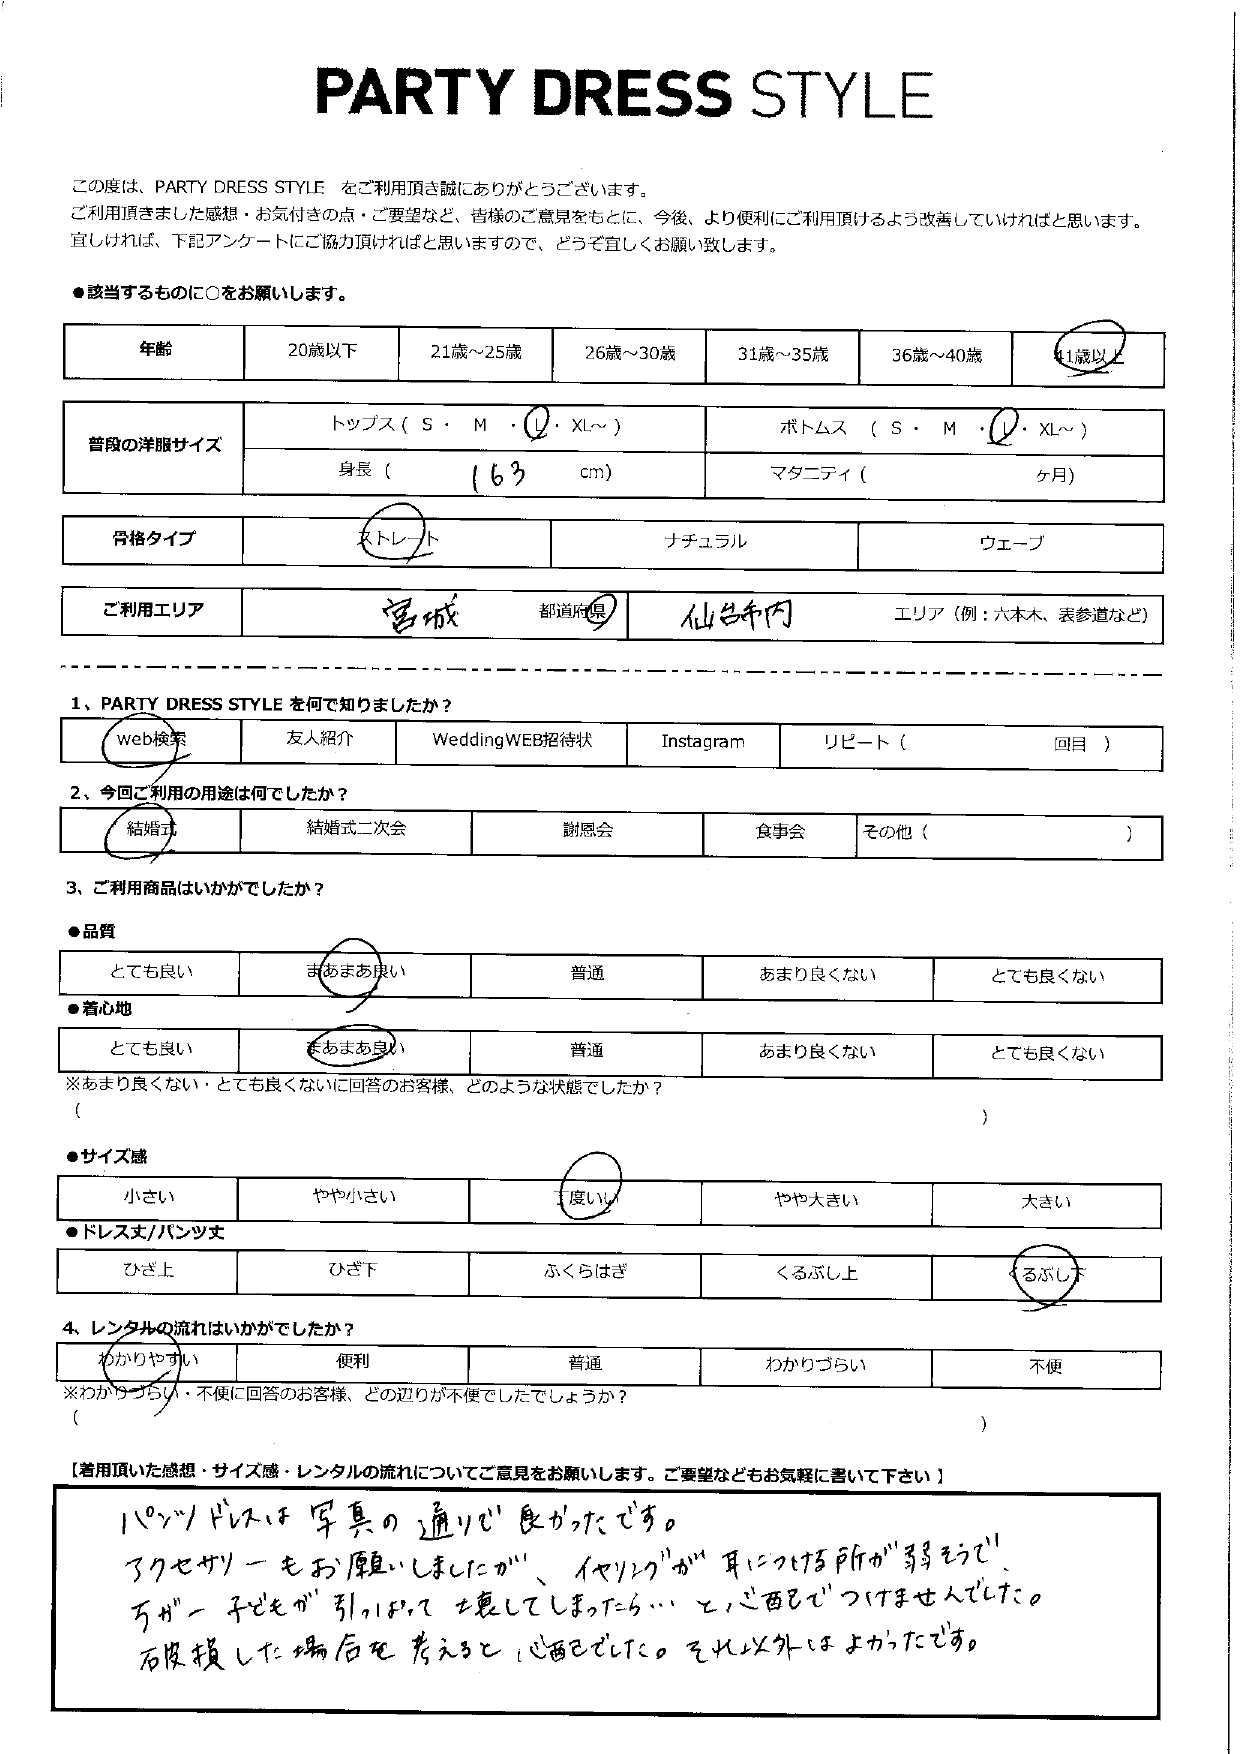 PARTY DRESS STYLE
この度は、PARTY DRESS STYLE をご利用頂き誠にありがとうございます。
ご利用頂きました感想・お気付きの点・ご要望など、皆様のご意見をもとに、今後、より便利にご利用頂けるよう改善していければと思います。
宜しければ、下記アンケートにご協力頂ければと思いますので、どうぞ宜しくお願い致します。
●該当するものに○をお願いします。
年齢 20歳以下 21歳～25歳 26歳～30歳 31歳～35歳 36歳～40歳 41歳以上
普段の洋服サイズ トップス ( S ・ M ・ L ・ XL～ ) ボトムス ( S ・ M ・ L ・ XL～ )
身長 ( 163 cm) マタニティ ( ヶ月)
骨格タイプ ストレート ナチュラル ウェーブ
ご利用エリア 宮城 都道府県 仙台市内 エリア（例：六本木、表参道など）
1、PARTY DRESS STYLE を何で知りましたか？
web検索 友人紹介 WeddingWEB招待状 Instagram リピート ( 回目 )
2、今回ご利用の用途は何でしたか？
結婚式 結婚式二次会 謝恩会 食事会 その他 ( )
3、ご利用商品はいかがでしたか？
●品質
とても良い まあまあ良い 普通 あまり良くない とても良くない
●着心地
とても良い まあまあ良い 普通 あまり良くない とても良くない
※あまり良くない・とても良くないに回答のお客様、どのような状態でしたか？
( )
●サイズ感
小さい やや小さい 丁度いい やや大きい 大きい
●ドレス丈/パンツ丈
ひざ上 ひざ下 ふくらはぎ くるぶし上 くるぶし下
4、レンタルの流れはいかがでしたか？
わかりやすい 便利 普通 わかりづらい 不便
※わかりづらい・不便に回答のお客様、どの辺りが不便でしたでしょうか？
( )
【着用頂いた感想・サイズ感・レンタルの流れについてご意見をお願いします。ご要望などもお気軽に書いて下さい 】
パンツドレスは写真の通りで良かったです。
アクセサリーもお願いしましたが、イヤリングが耳につける所が弱そうで、
万が一子どもが引っぱって壊してしまったら…と心配でつけませんでした。
破損した場合を考えると心配でした。それ以外はよかったです。